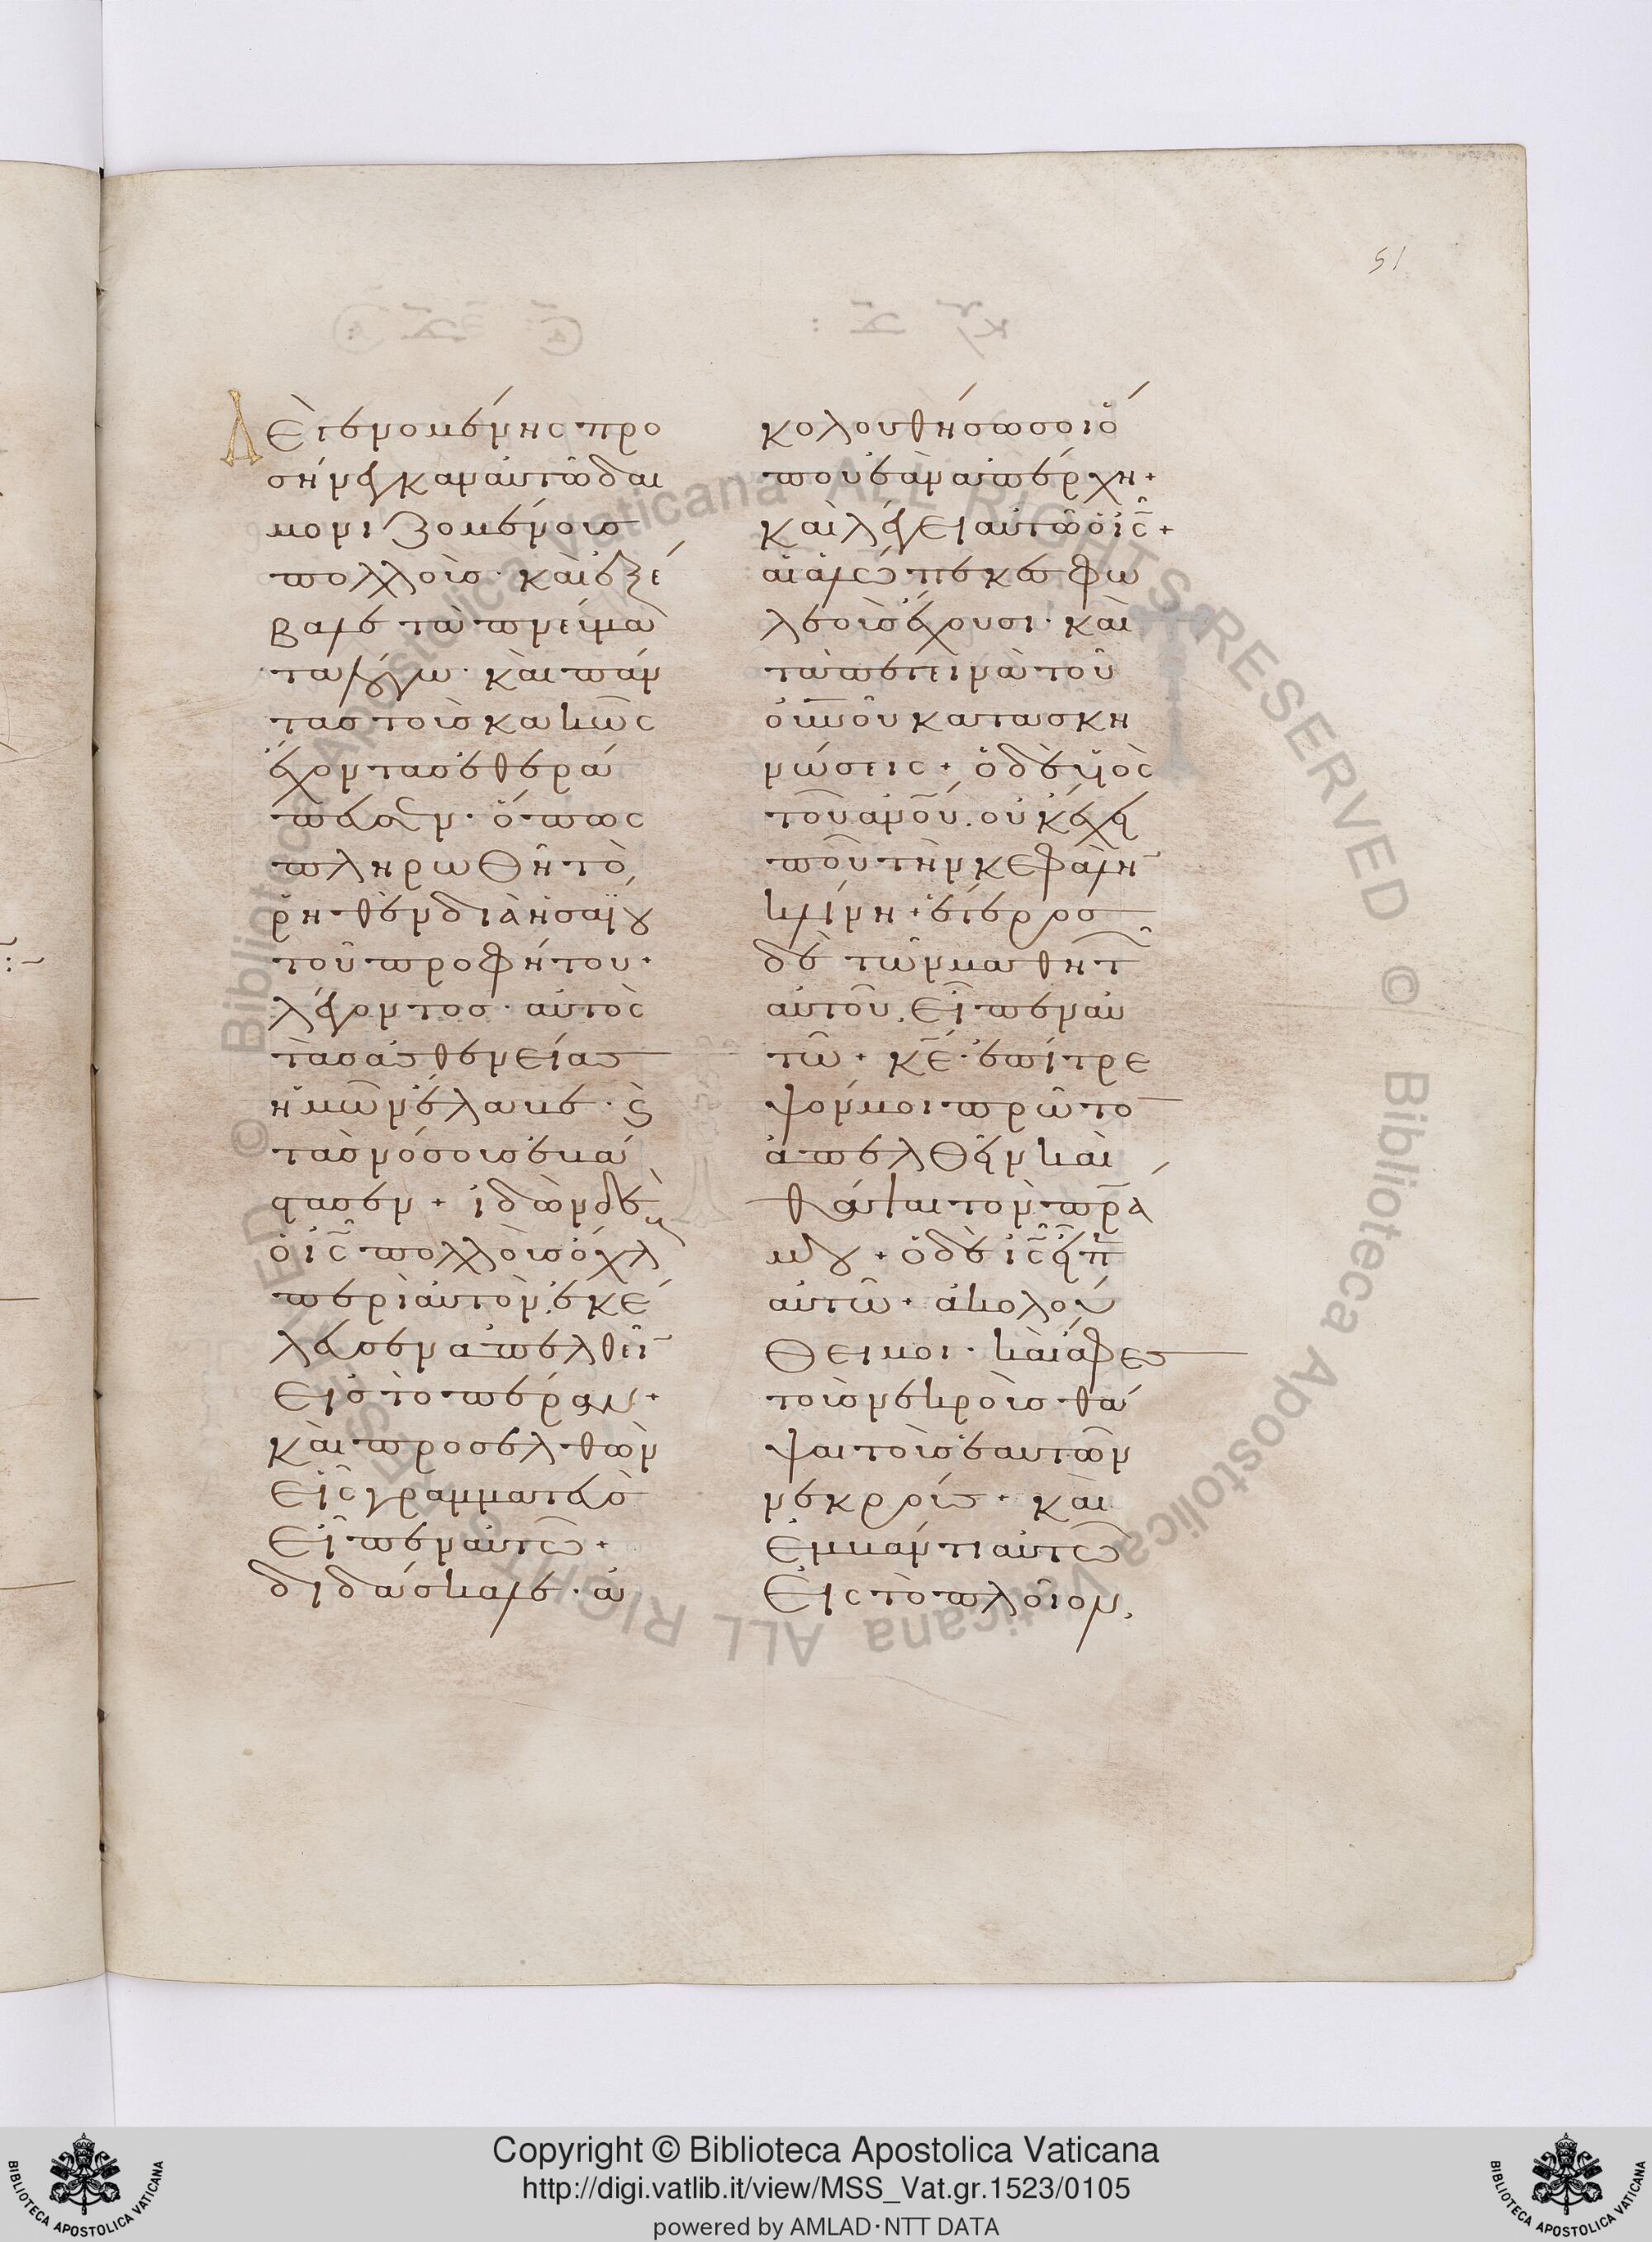 51
Δὲ γενομένης προ
σήνεγκαν αὐτῶ δαι
μονιζομένους
πολλοὺσ· καὶ ἐξέ
βαλε τὰ πνεύμα
τα λόγω· καὶ πάν
τασ τοὺσ κακῶς
ἔχοντασ ἐθερά
πευσεν· ὅπως
πληρωθῆ τὸ
ῥηθὲν διὰ ἡσαΐου
τοῦ προφήτου·
λέγοντοσ· αὐτὸς
τὰσ ἀσθενείας
ἡμῶν ἔλαβε· ϗ
τὰσ νόσουσ ἐβά
στασεν + ἰδὼν δὲ
ὁ ις πολλοὺσ ὄχλ
περὶ αὐτὸν. ἐκέ
λευσεν ἀπελθεῖ
εἰσ τὸ πέραν +
καὶ προσελθὼν
εἷς γραμματεὺσ
εἶπεν αὐτῶ +
διδάσκαλε· ἀ
κολουθήσω σοι ὅ
που ἐὰν ἀπέρχη +
καὶ λέγει αὐτῶ ὁ ις +
αἱ ἀλώπεκεσ φω
λεοὺσ ἔχουσι· καὶ
τὰ πετεινὰ τοῦ
οὐνοῦ κατασκη
νώσεις + ὁ δὲ υἱὸς
τοῦ ἀνοῦ. οὐκ ἔχει
ποῦ τὴν κεφαλὴ
κλίνη + ἕτεροσ
δὲ τῶν μαθητ
αὐτοῦ. εἶπεν αὐ
τῶ + κε· ἐπίτρε
ψόν μοι πρῶτο
ἀπελθεῖν καὶ
θάψαι τὸν πρα
μου + ὁ δὲ ις εἶπ
αὐτῶ + ἀκολού
θει μοι· καὶ ἄφες
τοὺσ νεκροὺσ θά
ψαι τοὺσ ἑαυτῶν
νεκρούς + καὶ
ἐμβάντι αὐτῶ
εἰς τὸ πλοῖον,
Copyright © Biblioteca Apostolica Vaticana
http://digi.vatlib.it/view/MSS_Vat.gr.1523/0105
powered by AMLAD·NTT DATA
BIBLIOTECA APOSTOLICA VATICANA
BIBLIOTECA APOSTOLICA VATICANA
© Biblioteca Apostolica Vaticana ALL RIGHTS RESERVED © Biblioteca Apostolica Vaticana ALL RIGHTS RESERVED